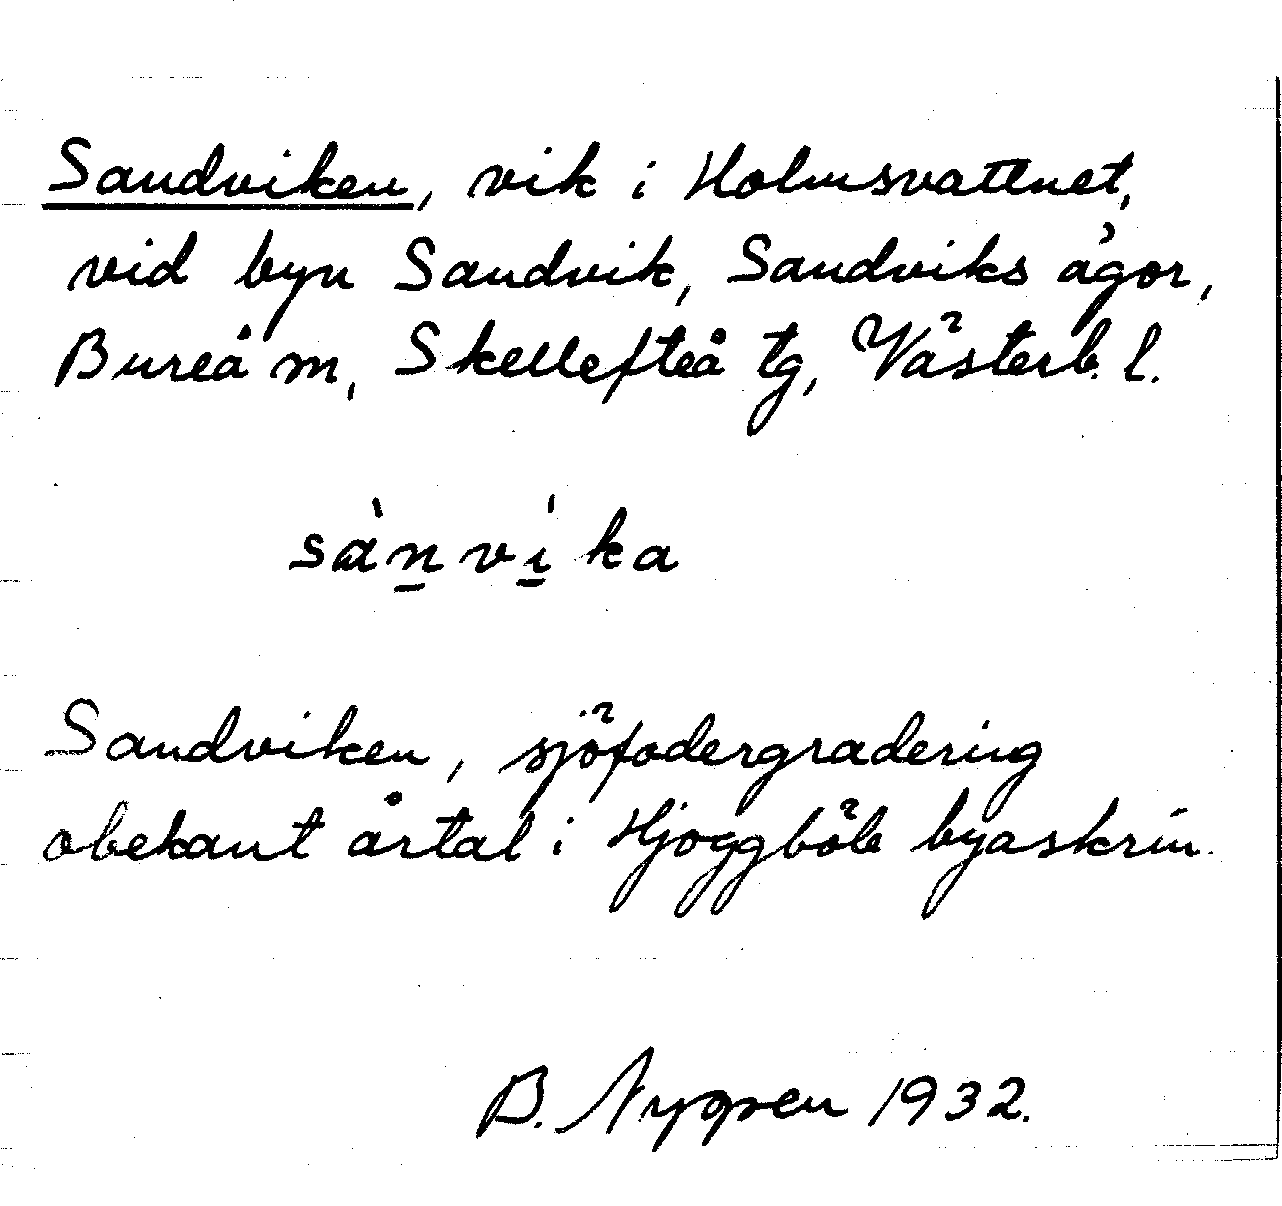 Sandviken, vik i Holmsvattnet,
vid byn Sandvik, Sandviks ägor,
Bureå m, Skellefteå tg, Västerb. l.
sàn̲vi̲̍ka
Sandviken, sjöfodergradering
obekant årtal i Hjoggböle byaskrin.
B. Nygren 1932.